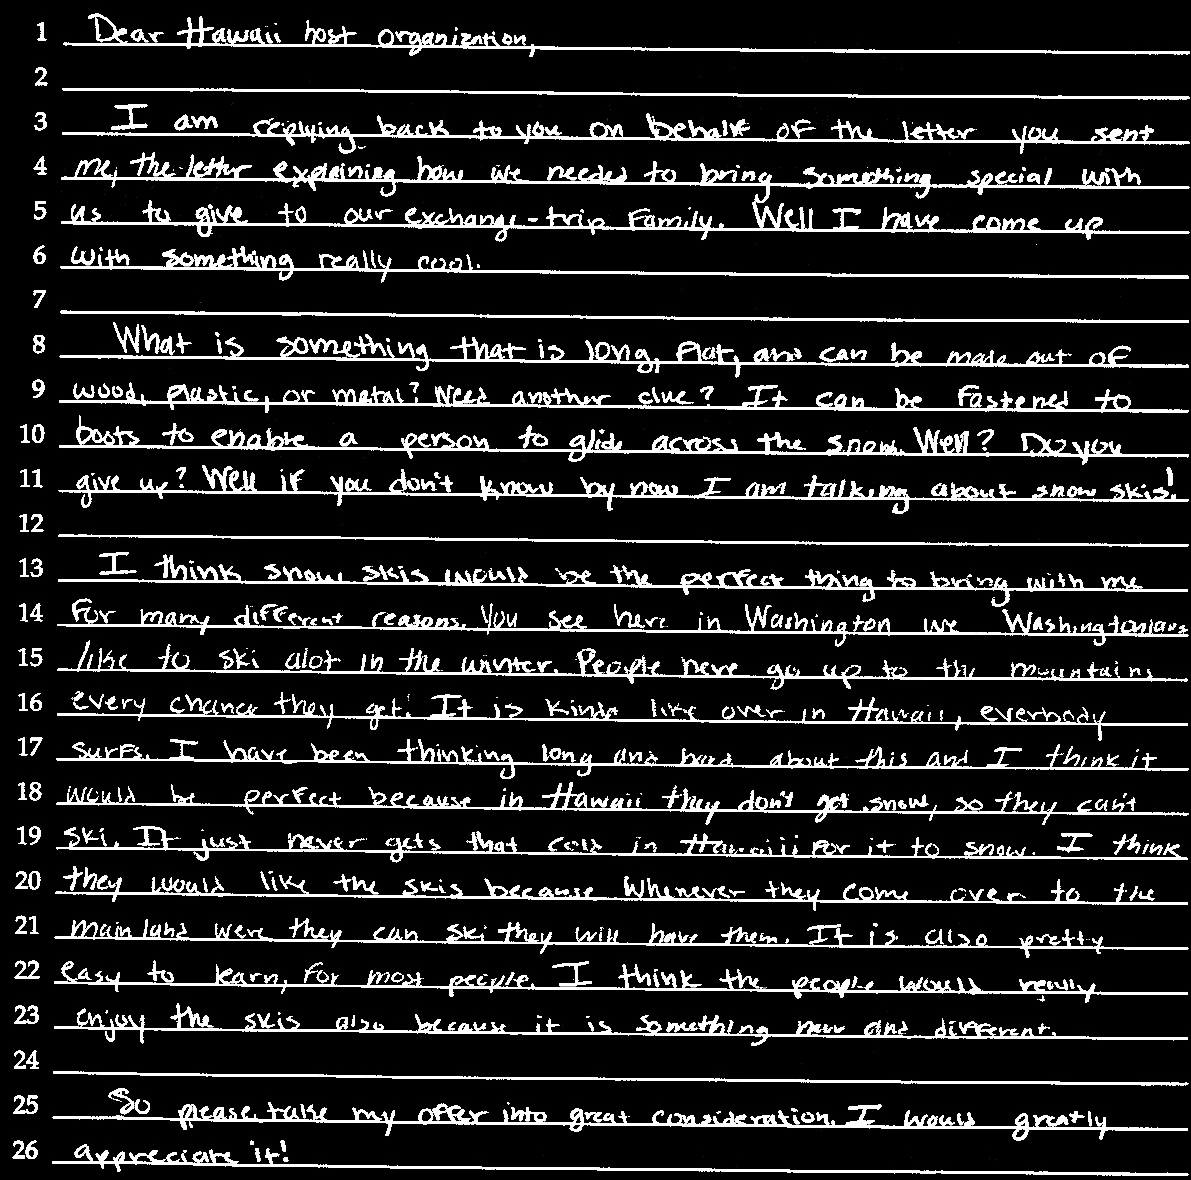 1 Dear Hawaii host organization,
2
3 I am replying back to you on behalf of the letter you sent
4 me, the letter explaining how we needed to bring something special with
5 us to give to our exchange-trip family. Well I have come up
6 with something really cool.
7
8 What is something that is long, flat, and can be made out of
9 wood, plastic, or metal? Need another clue? It can be fastened to
10 boots to enable a person to glide across the snow. Well? Do you
11 give up? Well if you don't know by now I am talking about snow skis!
12
13 I think snow skis would be the perfect thing to bring with me
14 for many different reasons. You see here in Washington we Washingtonians
15 like to ski alot in the winter. People here go up to the mountains
16 every chance they get! It is kinda like over in Hawaii, everbody
17 surfs. I have been thinking long and hard about this and I think it
18 would be perfect because in Hawaii they don't get snow, so they can't
19 ski. It just never gets that cold in Hawaiii for it to snow. I think
20 they would like the skis because whenever they come over to the
21 mainland were they can ski they will have them. It is also pretty
22 easy to learn, for most people. I think the people would really
23 enjoy the skis also because it is something new and different.
24
25 So please take my offer into great consideration. I would greatly
26 appreciate it!